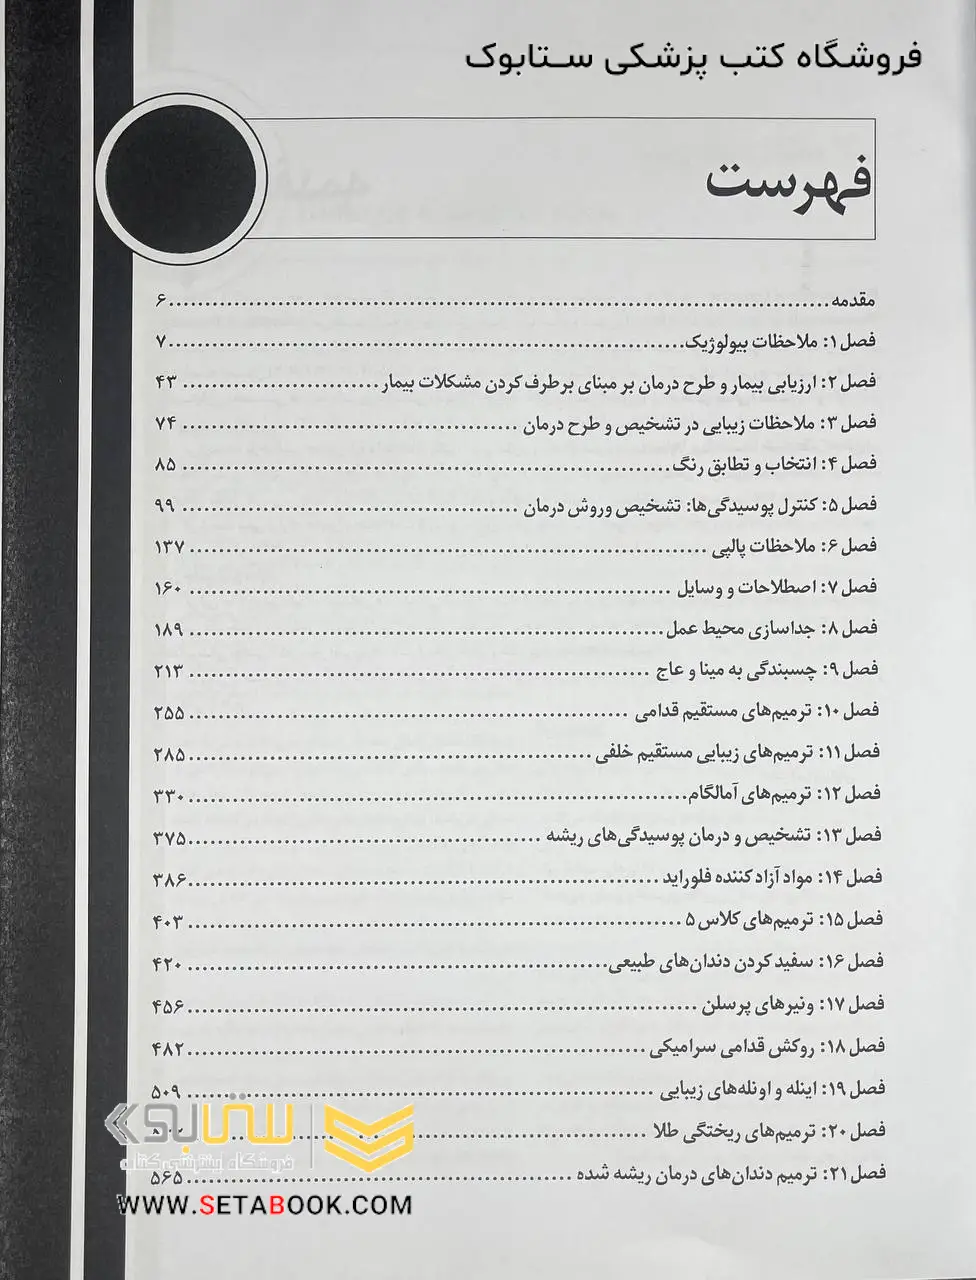 فروشگاه کتب پزشکی ستابوک
فهرست
مقدمه ۶
فصل ۱: ملاحظات بیولوژیک ۷
فصل ۲: ارزیابی بیمار و طرح درمان بر مبنای برطرف کردن مشکلات بیمار ۴۳
فصل ۳: ملاحظات زیبایی در تشخیص و طرح درمان ۷۴
فصل ۴: انتخاب و تطابق رنگ ۸۵
فصل ۵: کنترل پوسیدگی‌ها: تشخیص وروش درمان ۹۹
فصل ۶: ملاحظات پالپی ۱۳۷
فصل ۷: اصطلاحات و وسایل ۱۶۰
فصل ۸: جداسازی محیط عمل ۱۸۹
فصل ۹: چسبندگی به مینا و عاج ۲۱۳
فصل ۱۰: ترمیم‌های مستقیم قدامی ۲۵۵
فصل ۱۱: ترمیم‌های زیبایی مستقیم خلفی ۲۸۵
فصل ۱۲: ترمیم‌های آمالگام ۳۳۰
فصل ۱۳: تشخیص و درمان پوسیدگی‌های ریشه ۳۷۵
فصل ۱۴: مواد آزاد کننده فلوراید ۳۸۶
فصل ۱۵: ترمیم‌های کلاس ۵ ۴۰۳
فصل ۱۶: سفید کردن دندان‌های طبیعی ۴۲۰
فصل ۱۷: ونیرهای پرسلن ۴۵۶
فصل ۱۸: روکش قدامی سرامیکی ۴۸۲
فصل ۱۹: اینله و اونله‌های زیبایی ۵۰۹
فصل ۲۰: ترمیم‌های ریختگی طلا
فصل ۲۱: ترمیم دندان‌های درمان ریشه شده ۵۶۵
ستابوک
فروشگاه اینترنتی کتاب
WWW.SETABOOK.COM